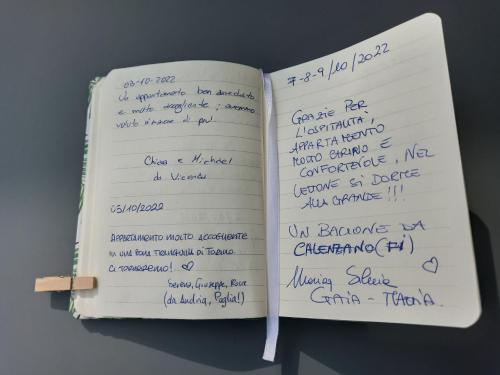 03-10-2022
Un appartamento ben arredato
e molto accogliente; avremmo
voluto rimanere di più!
Chiara e Michael
da Vicenza
05/10/2022
APPARTAMENTO MOLTO ACCOGLIENTE
IN UNA ZONA TRANQUILLA DI TORINO.
CI TORNEREMO! ♡
Serena, Giuseppe,
(da Andria, Puglia!)
7-8-9/10/2022
GRAZIE PER
L'OSPITALITÀ,
APPARTAMENTO
MOLTO CARINO E
CONFORTEVOLE, NEL
LETTONE SI DORME
ALLA GRANDE!!!
UN BACIONE DA
CALENZANO (FI)
♡
GAIA -